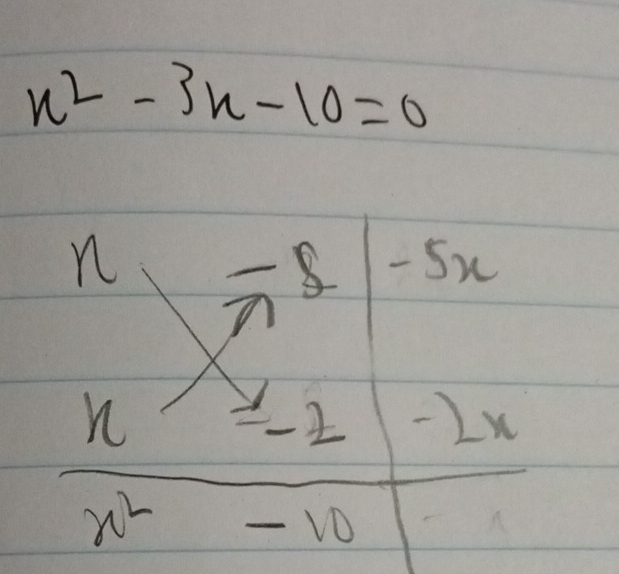 x² - 3x - 10 = 0
x -5 | -5x
x -2 | -2x
x² -10